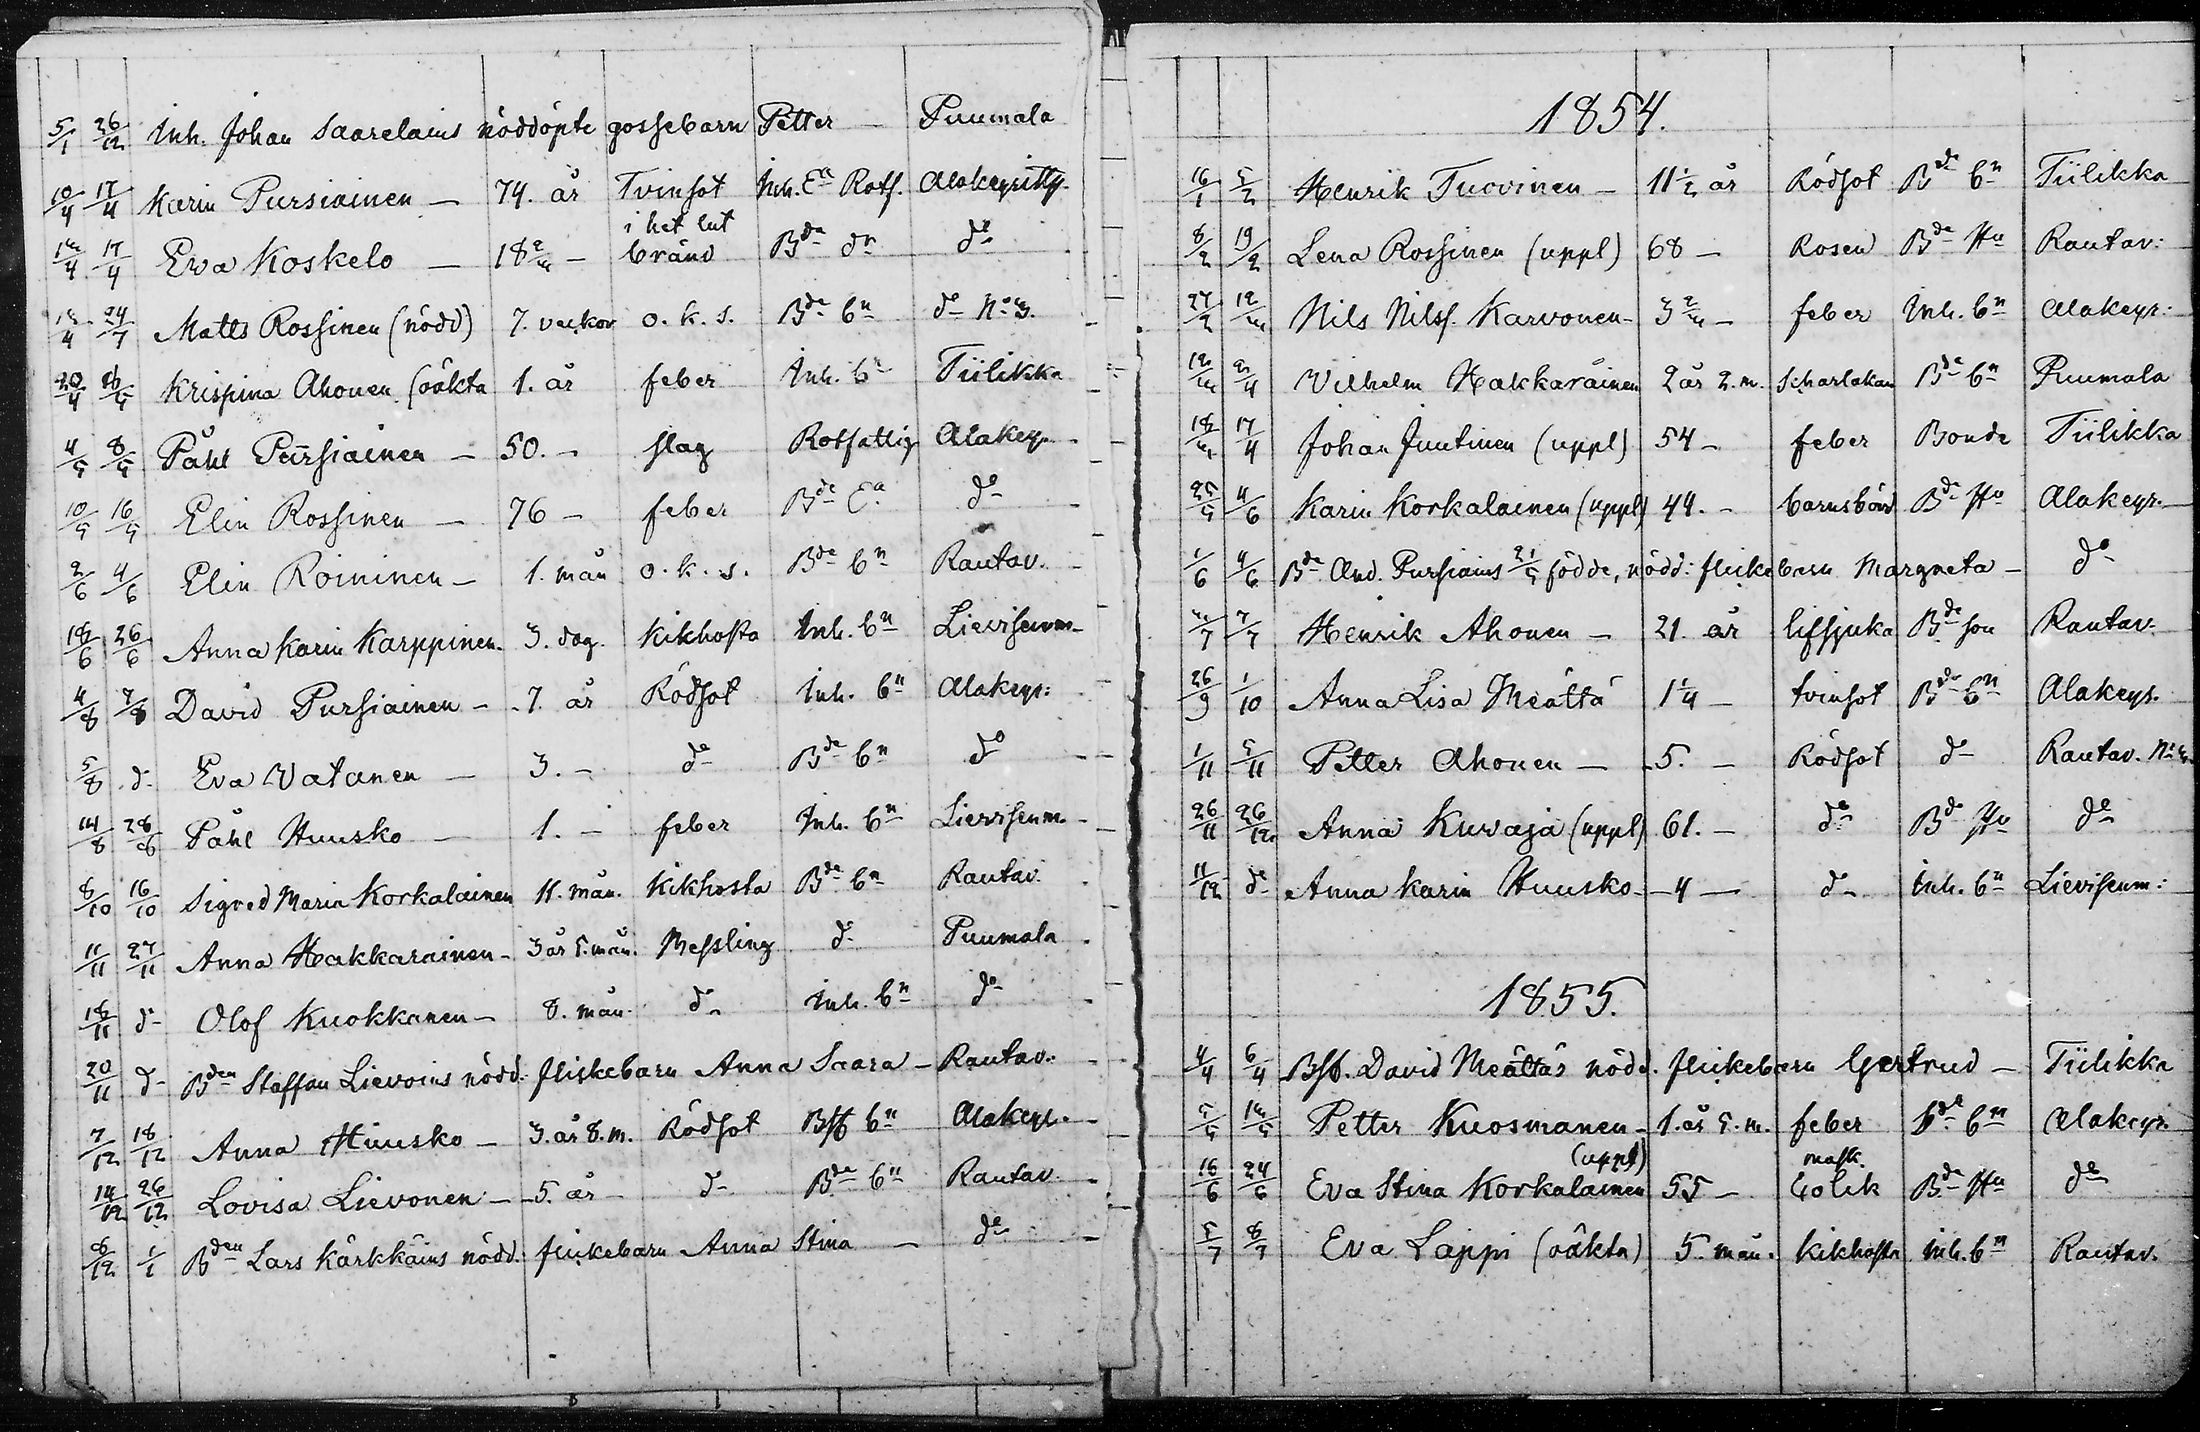 5/1 26/12 Inh. Johan Saarelains nöddöpte gossebarn Petter — Puumala
10/4 17/4 Karin Pursiainen — 74. år Tvinsot Inh. Ea Rotf. Alakeyritty.
17/4 Eva Koskelo — 18 — i het lut bränd Bde dr do
24/7 Matts Rossinen (nödd) 7. veckor o. k. s. Bde bn do No 3.
20/4 Krispina Ahonen (oäkta 1. år feber Inh. bn Tiilikka
4/5 8/5 Påhl Pursiainen — 50. — slag Rotfattig Alakey.
10/5 16/5 Elin Rossinen — 76 — feber Bde Ea do
2/6 4/6 Elin Roininen — 1. mån o. k. s. Bde bn Rautav.
18/6 26/6 Anna Karin Karppinen. 3. dag. Kikhosta Inh. bn Lievisenm.
4/8 7/8 David Pursiainen — 7. år Rödsot Inh. bn Alakeyr:
5/8 do Eva Watanen — 3. — do Bde bn do
14/8 28/8 Påhl Huusko — 1. — feber Inh. bn Lievisenm.
8/10 16/10 Sigred Maria Korkalainen 11. mån. Kikhosta Bde bn Rautav.
11/11 27/11 Anna Hakkarainen — 3 år 5. mån. Messling do Puumala
18/11 do Olof Kuokkanen — 8. mån. do Inh. bn do
20/11 do Bden Staffan Lievoins nödd: flickebarn Anna Saara — Rautav:
7/12 18/12 Anna Huusko — 3. år 8. m. Rödsot Bss bn Alakeyr.
14/12 26/12 Lovisa Lievonen — 5. år do Bde bn Rautav.
26/12 1/1 Bden Lars Kärkkäins nödd: flickebarn Anna Stina — do
1854.
16/1 5/2 Henrik Tuovinen — 11 1/2 år Rödsot Bde bn Tiilikka
8/2 19/2 Lena Rossinen (uppl) 68 — Rosen Bde Hu Rautav:
27/2 Nils Nilss. Karvonen — 3 — feber Inh. bn Alakeyr:
Wilhelm Hakkaräinen 2 år 2. m. Scharlakan Bde bn Puumala
17/4 Johan Juutinen (uppl) 54 — feber Bonde Tiilikka
25/5 4/6 Karin Korkalainen (uppl) 44. — barnsbörd Bde Hu Alakeyr.
1/6 4/6 Bde And. Pursiains 21/5 födde, nödd: flickebarn Margreta — do
7/7 Henrik Ahonen — 21. år lifsjuka Bde son Rautav.
26/9 1/10 Anna Lisa Meättä 1 1/4 — tvinsot Bde bn Alakeyr.
1/11 5/11 Petter Ahonen — 5. — Rödsot do Rautav. No
26/11 26/12 Anna Kuvaja (uppl) 61. — do Bde Hu do
11/12 do Anna Karin Huusko — 4 — do Inh. bn Lievisenm:
1855.
4/4 6/4 Bss. David Meättäs nödd. flickebarn Gertrud — Tiilikka
5/5 Petter Kuosmanen — 1. år 5. m. feber bde bn Alakeyr.
16/6 24/6 Eva Stina Korkalainen (uppl) 55 — mask. Colik Bde Hu do
5/7 8/7 Eva Lappi (oäkta) 5. mån. Kikhosta Inh. bn Rautav.